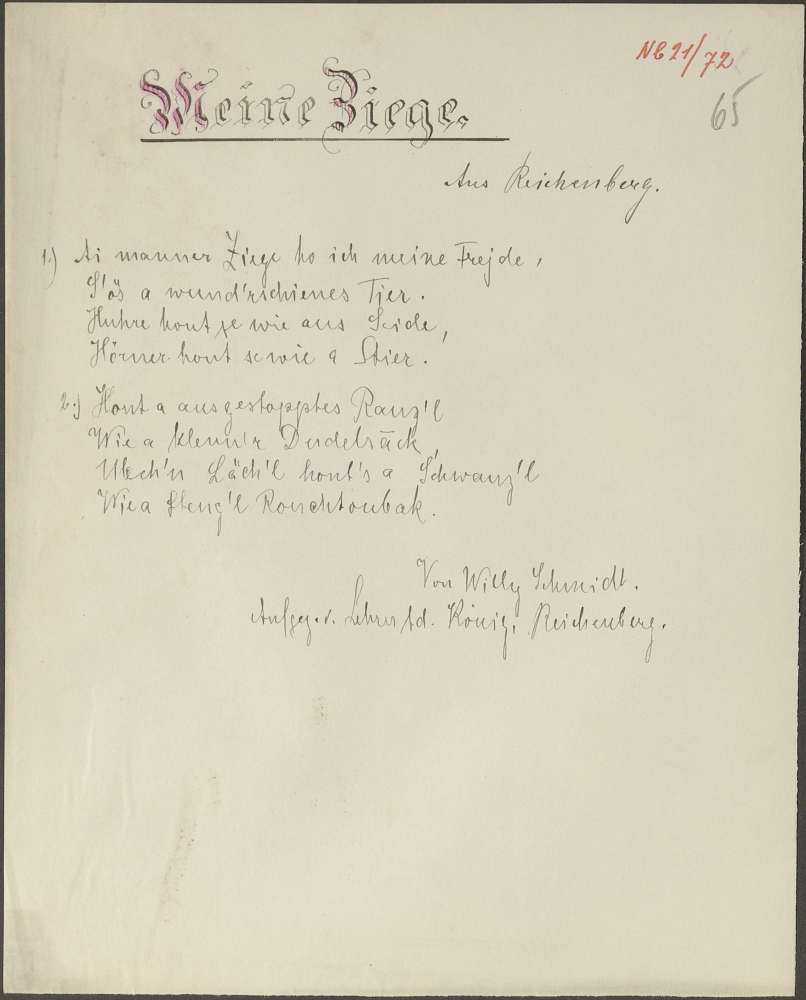 NB 21/72
65
Meine Ziege.
Aus Reichenberg.
1.) Ai manner Ziege ho ich meine Frejde,
S'ös a wund'rschienes Tier.
Huhre hout se wie aus Seide,
Hörner hout se wie a Stier.
2.) Hout a ausgestopptes Ranz'l
Wie a klenn'r Dudelsäck,
Läch'l hout's a Schwanz'l
Wie a Steng'l Rouchtoubak.
Von Willy Schmidt.
Aufgez. v. Lehrer König, Reichenberg.